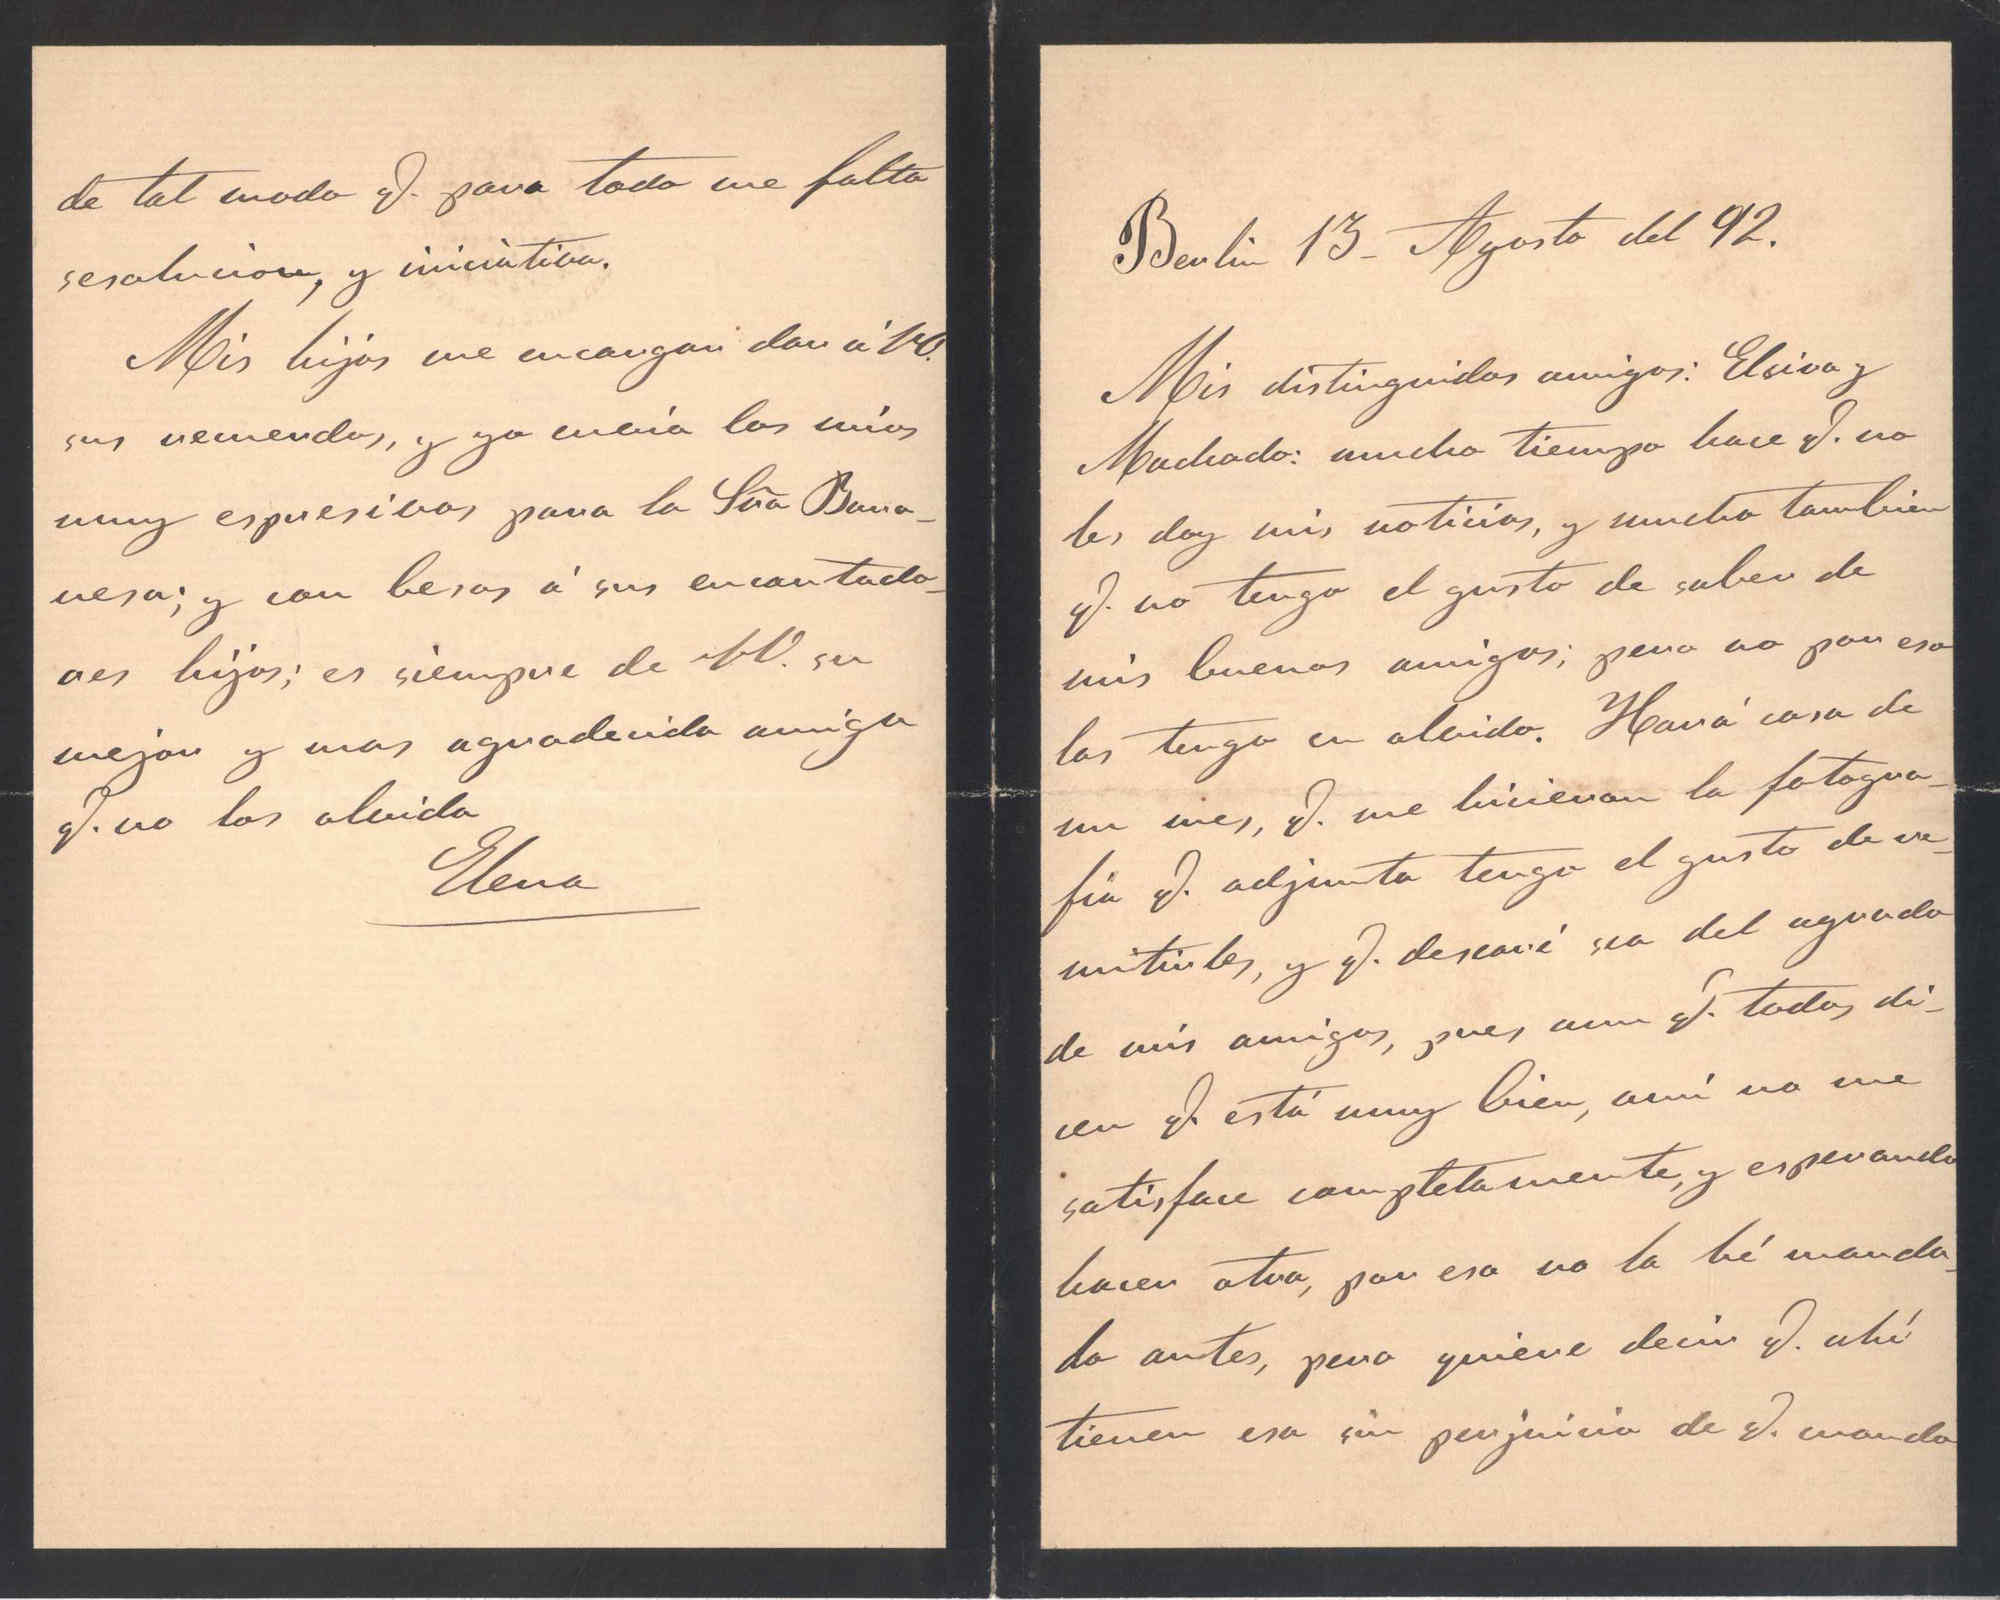 Berlin 13- Agosto del 92.
Mis distinguidos amigos: Elsiva y
Machado: mucho tiempo hace q. no
les doy mis noticias, y mucho tambien
q. no tengo el gusto de saber de
mis buenos amigos; pero no por eso
los tengo en olvido. Hará cosa de
un mes, q. me hicieron la fotogra-
fia q. adjunta tengo el gusto de re-
mitirles, y q. desearé sea del agrado
de mis amigos, pues aun q. todos di-
cen q. está muy bien, amí no me
satisface completamente, y esperando
hacer otra, por eso no la hé manda-
do antes, pero quiere decir q. ahí
tienen esa sin perjuicio de q. mando
de tal modo q. para todo me falta
resolucion, y iniciativa.
Mis hijos me encargan dar á VV.
sus recuerdos, y yo envio los mios
muy espresivos para la Sra Baro-
nesa; y con besos á sus encantado-
res hijos; es siempre de VV. su
mejor y mas agradecida amiga
q. no los olvida
Elena